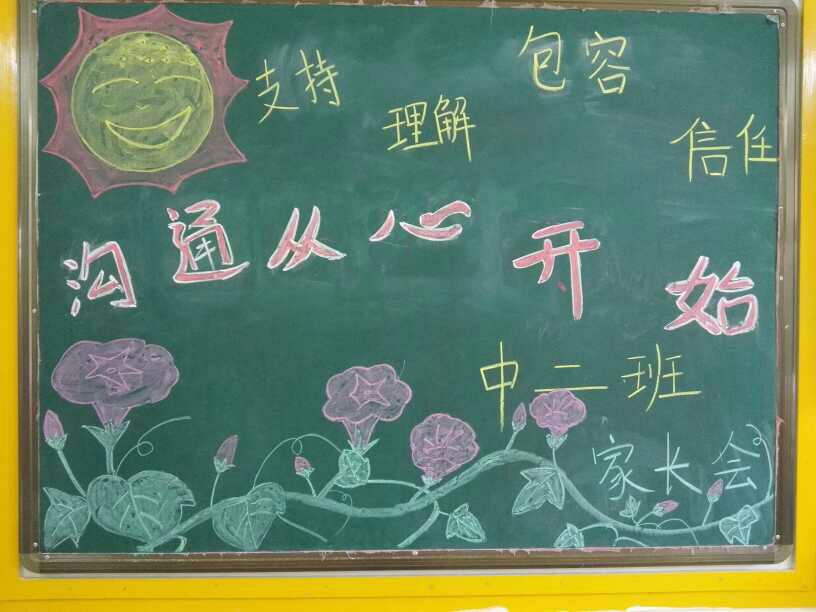 支持
理解
包容
信任
沟通从心开始
中二班
家长会